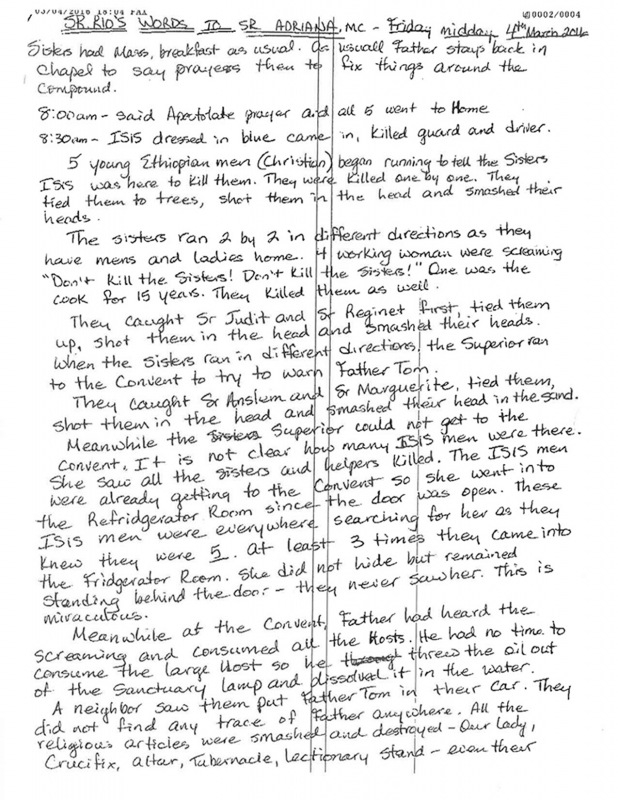 03/04/2016 16:04 FAX 0002/0004
SR. RIO'S WORDS TO SR. ADRIANA, MC - Friday midday 4th March 2016
Sisters had Mass, breakfast as usual. As usuall Father stays back in
chapel to say prayers then to fix things around the
compound.
8:00am - said Apostolate prayer and all 5 went to Home
8:30am - ISIS dressed in blue came in, killed guard and driver.
5 young Ethiopian men (Christian) began running to tell the Sisters
ISIS was here to kill them. They were killed one by one. They
tied them to trees, shot them in the head and smashed their
heads.
The sisters ran 2 by 2 in different directions as they
have mens and ladies home. 4 working woman were screaming
"Don't kill the Sisters! Don't kill the sisters!" One was the
cook for 15 years. They killed them as well.
They caught Sr Judit and Sr Reginet first, tied them
up, shot them in the head and smashed their heads.
When the Sisters ran in different directions, the Superior ran
to the Convent to try to warn Father Tom.
They caught Sr Anslem and Sr Marguerite, tied them,
shot them in the head and smashed their head in the sand.
Meanwhile the Sisters Superior could not get to the
Convent. It is not clear how many ISIS men were there.
She saw all the sisters and helpers killed. The ISIS men
were already getting to the Convent so she went into
the Refridgerator Room since the door was open. These
ISIS men were everywhere searching for her as they
knew they were 5. At least 3 times they came into
the Fridgerator Room. She did not hide but remained
standing behind the door - they never saw her. This is
miraculous.
Meanwhile at the Convent, Father had heard the
screaming and consumed all the Hosts. He had no time to
consume the large Host so he threw the oil out
of the Sanctuary lamp and dissolved it in the water.
A neighbor saw them put Father Tom in their car. They
did not find any trace of Father anywhere. All the
religious articles were smashed and destroyed - Our Lady,
Crucifix, altar, Tabernacle, Lectionary stand - even their